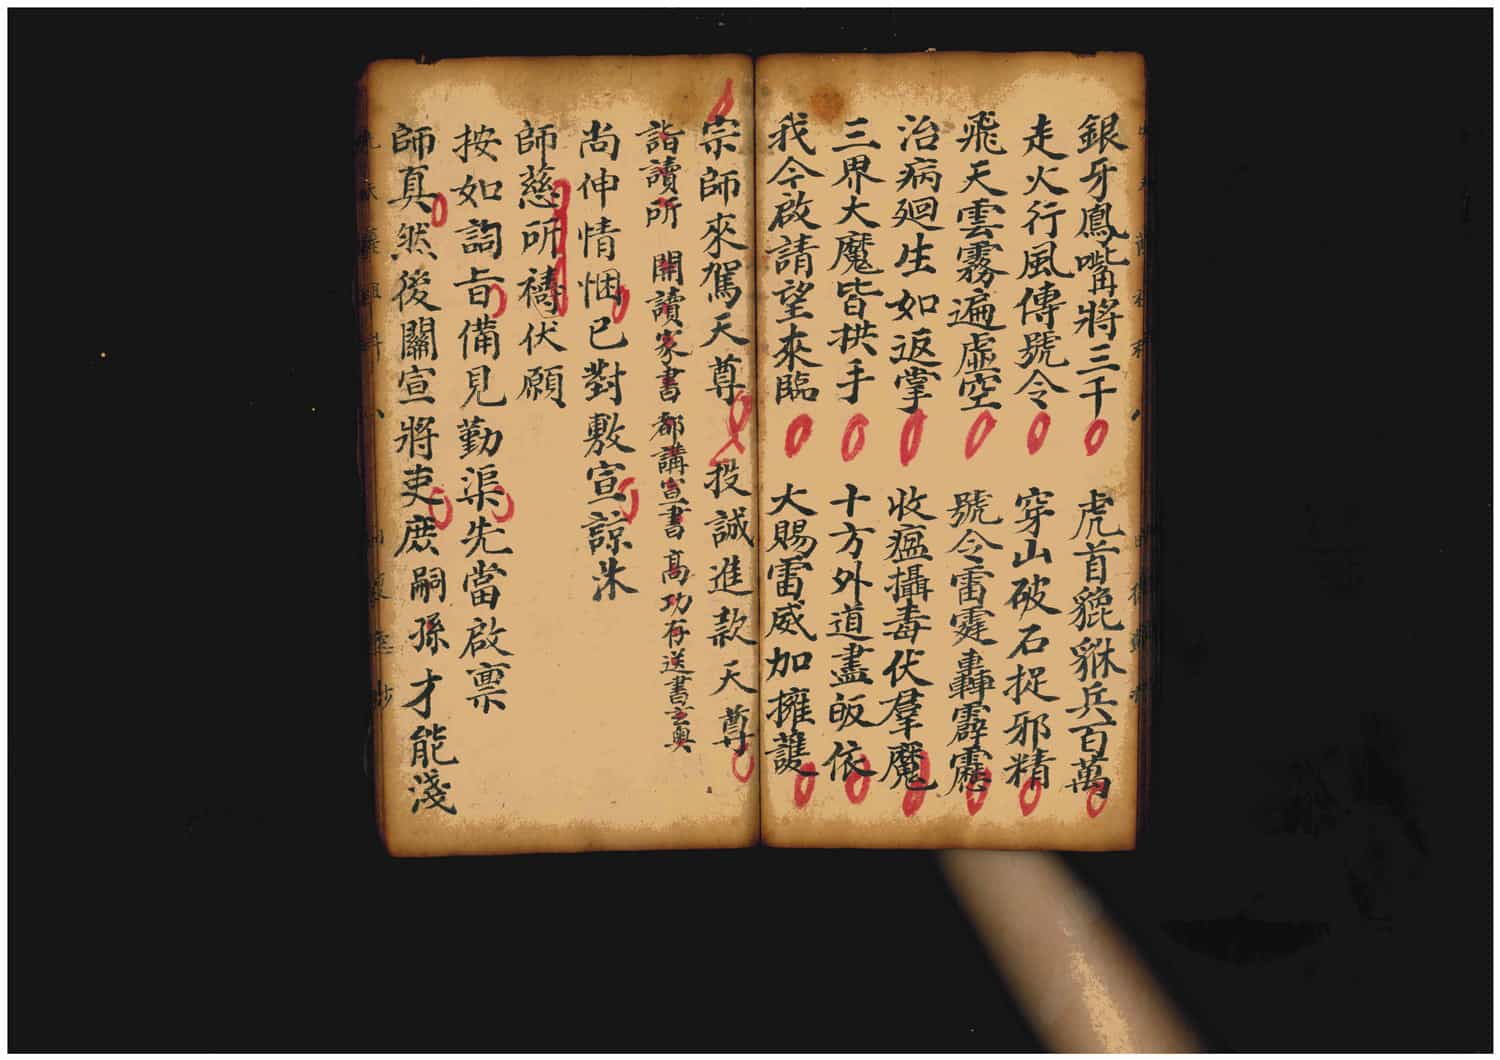 銀牙鳳嘴將三千 虎首貔貅兵百萬
走火行風傳號令 穿山破石捉邪精
飛天雲霧遍虛空 號令雷霆轟霹靂
治病廻生如返掌 收瘟攝毒伏羣魔
三界大魔皆拱手 十方外道盡皈依
我今啟請望來臨 大賜雷威加擁護
宗師來駕天尊 投誠進款天尊
詣讀所 開讀家書 都講宣書 高功存送書玄奥
尚伸情悃已對敷宣諒沐
師慈所禱伏願
按如詞旨備見勤渠先當啟禀
師真然後關宣將吏庶嗣孫才能淺